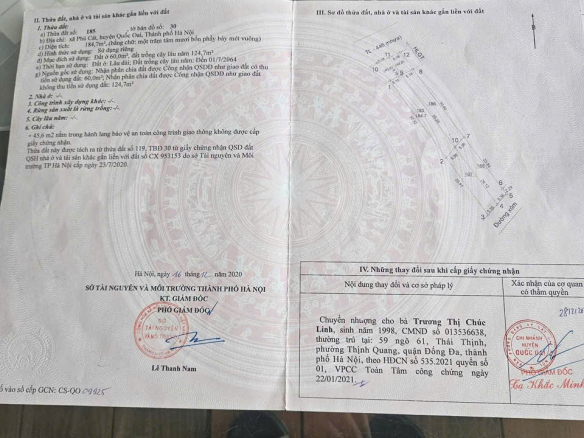 II. Thửa đất, nhà ở và tài sản khác gắn liền với đất
1. Thửa đất:
a) Thửa đất số: 185 , tờ bản đồ số: 30
b) Địa chỉ: xã Phú Cát, huyện Quốc Oai, Thành phố Hà Nội
c) Diện tích: 184,7m², (bằng chữ: một trăm tám mươi bốn phẩy bảy mét vuông)
d) Hình thức sử dụng: Sử dụng riêng
đ) Mục đích sử dụng: Đất ở 60,0m², đất trồng cây lâu năm 124,7m²
e) Thời hạn sử dụng: Đất ở: Lâu dài; Đất trồng cây lâu năm: Đến 01/7/2064
g) Nguồn gốc sử dụng: Nhận phân chia đất được Công nhận QSDĐ như giao đất có thu
tiền sử dụng đất: 60,0m²; Nhận phân chia đất được Công nhận QSDĐ như giao đất
không thu tiền sử dụng đất: 124,7m²
2. Nhà ở: -/-
3. Công trình xây dựng khác: -/-
4. Rừng sản xuất là rừng trồng: -/-
5. Cây lâu năm: -/-
6. Ghi chú:
+ 45,6 m2 nằm trong hành lang bảo vệ an toàn công trình giao thông không được cấp
giấy chứng nhận.
Thửa đất này được tách ra từ thửa đất số 119, TBĐ 30 từ giấy chứng nhận QSD ĐẤT
QSH nhà ở và tài sản khác gắn liền với đất số CX 953153 do sở Tài nguyên và Môi
trường TP Hà Nội cấp ngày 23/7/2020.
Hà Nội, ngày 16 tháng 12 năm 2020
SỞ TÀI NGUYÊN VÀ MÔI TRƯỜNG THÀNH PHỐ HÀ NỘI
KT. GIÁM ĐỐC
PHÓ GIÁM ĐỐC
SỞ
TÀI NGUYÊN VÀ
MÔI TRƯỜNG
Lê Thanh Nam
ố vào sổ cấp GCN: CS-QO
III. Sơ đồ thửa đất, nhà ở và tài sản khác gắn liền với đất
HLGT
Đường xóm
IV. Những thay đổi sau khi cấp giấy chứng nhận
Nội dung thay đổi và cơ sở pháp lý
Xác nhận của cơ quan
có thẩm quyền
Chuyển nhượng cho bà Trương Thị Chúc
Linh, sinh năm 1998, CMND số 013536638,
thường trú tại: 59 ngõ 61, Thái Thịnh,
phường Thịnh Quang, quận Đống Đa, thành
phố Hà Nội, theo HĐCN số 535.2021 quyển số
01, VPCC Toàn Tâm công chứng ngày
22/01/2021./.
CHI NHÁNH
HUYỆN
QUỐC OAI
PHÓ GIÁM ĐỐC
Tạ Khắc Minh